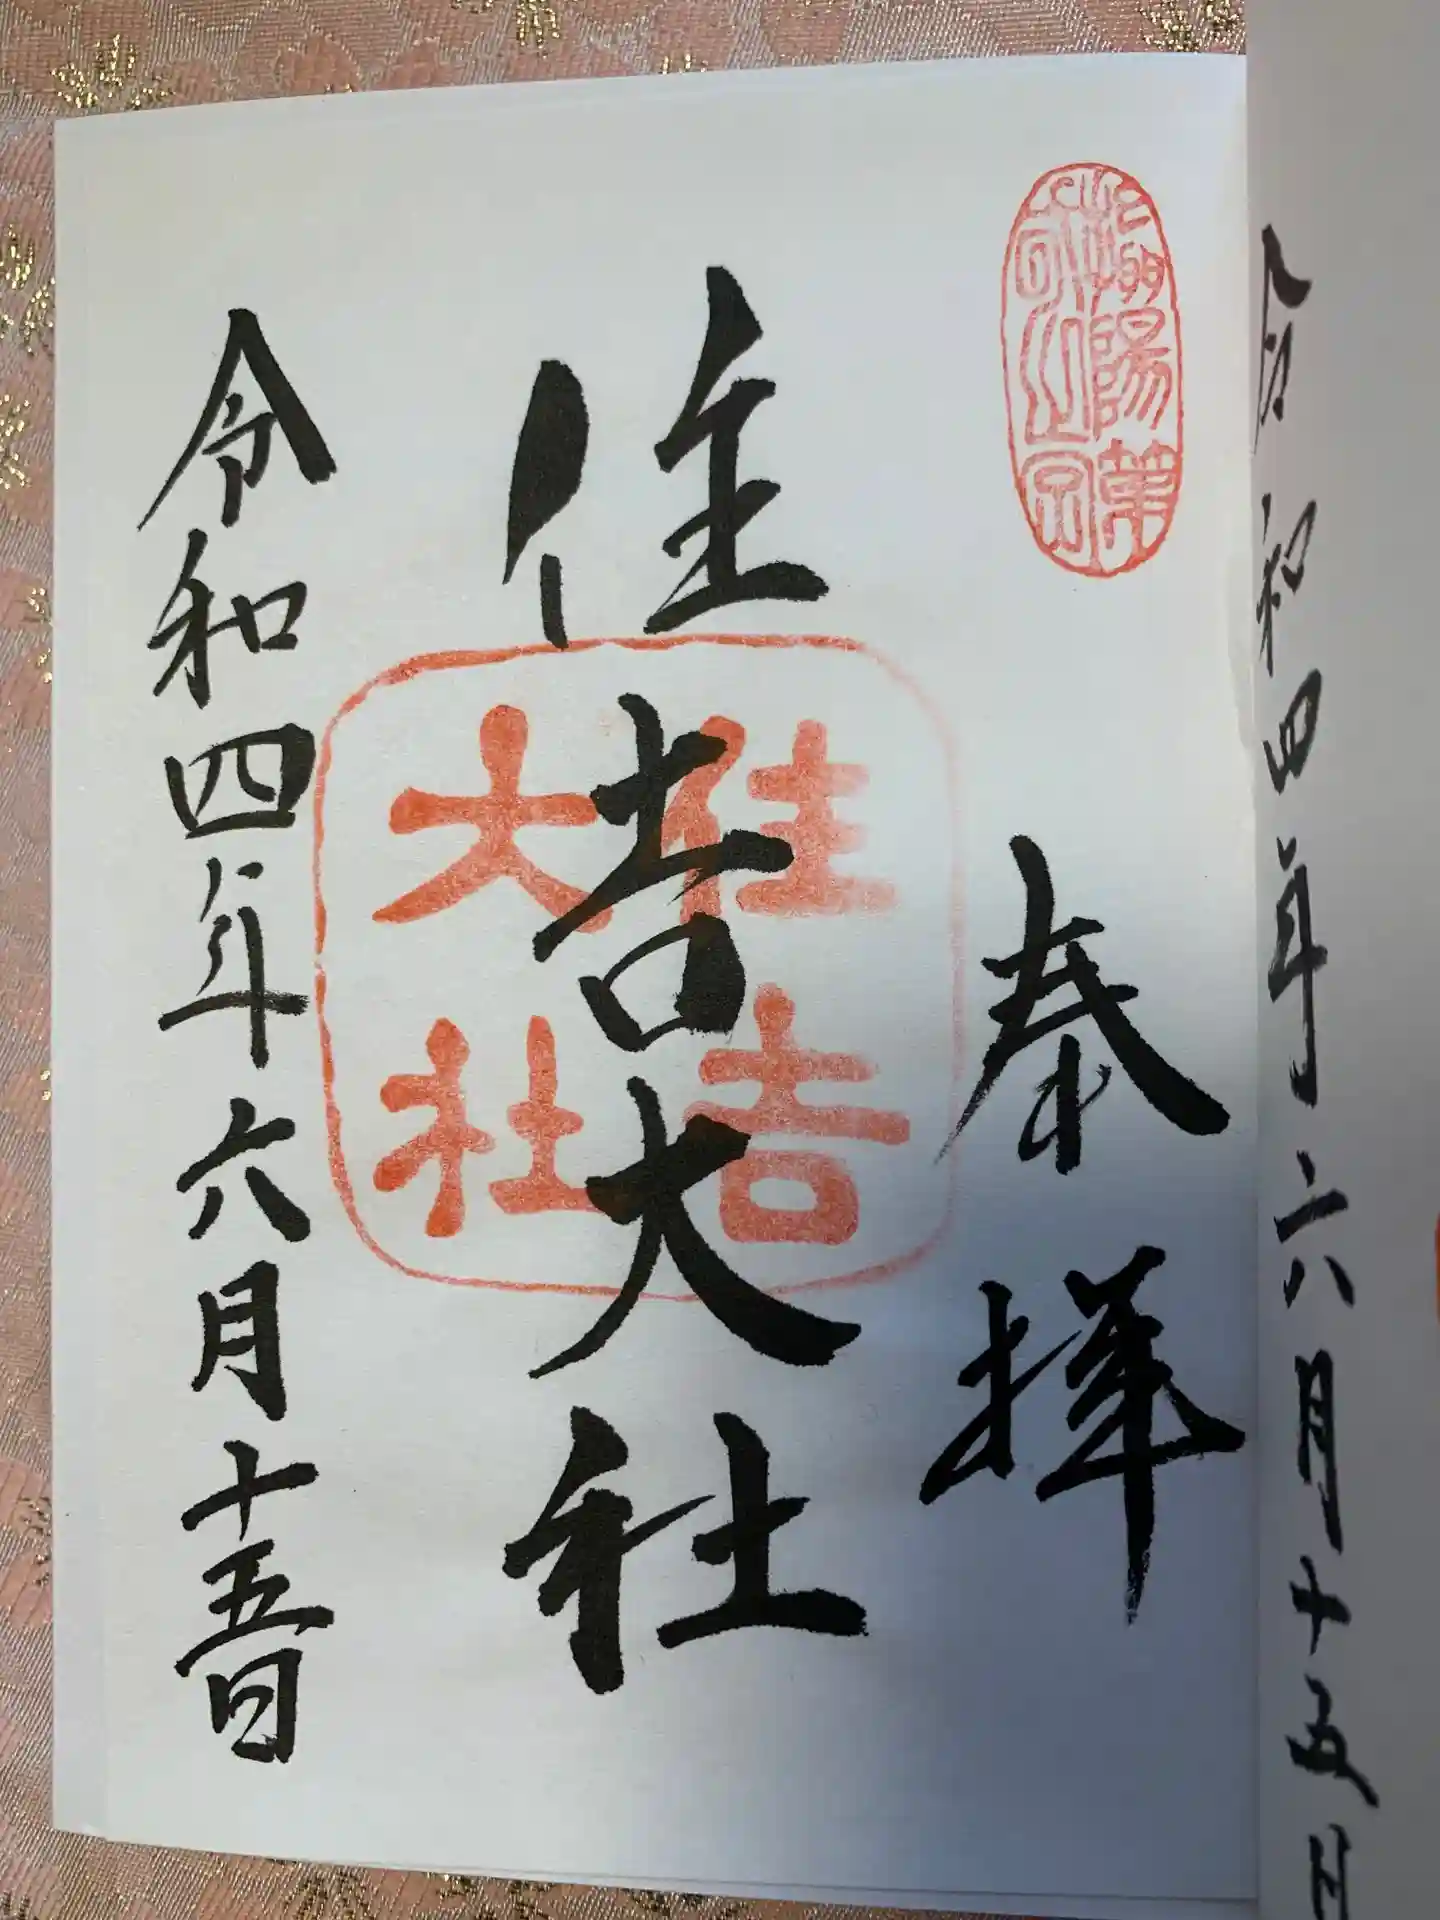 令和四年六月十五日
奉拝
住吉大社
住吉
大社
令和四年六月十五日